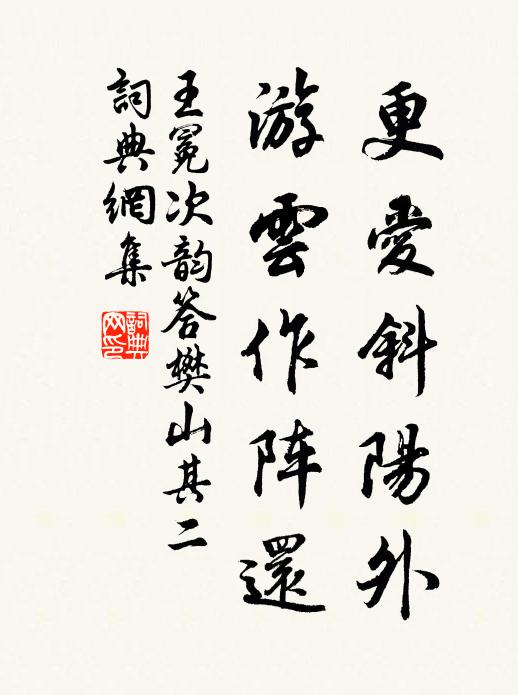 更愛斜陽外
游雲作阵還
王冕次韵答樊山其二
詞典網集
詞典
网印